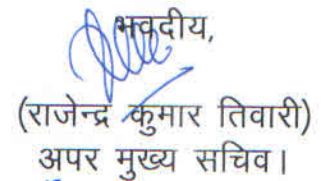 भवदीय,
(राजेन्द्र कुमार तिवारी)
अपर मुख्य सचिव।